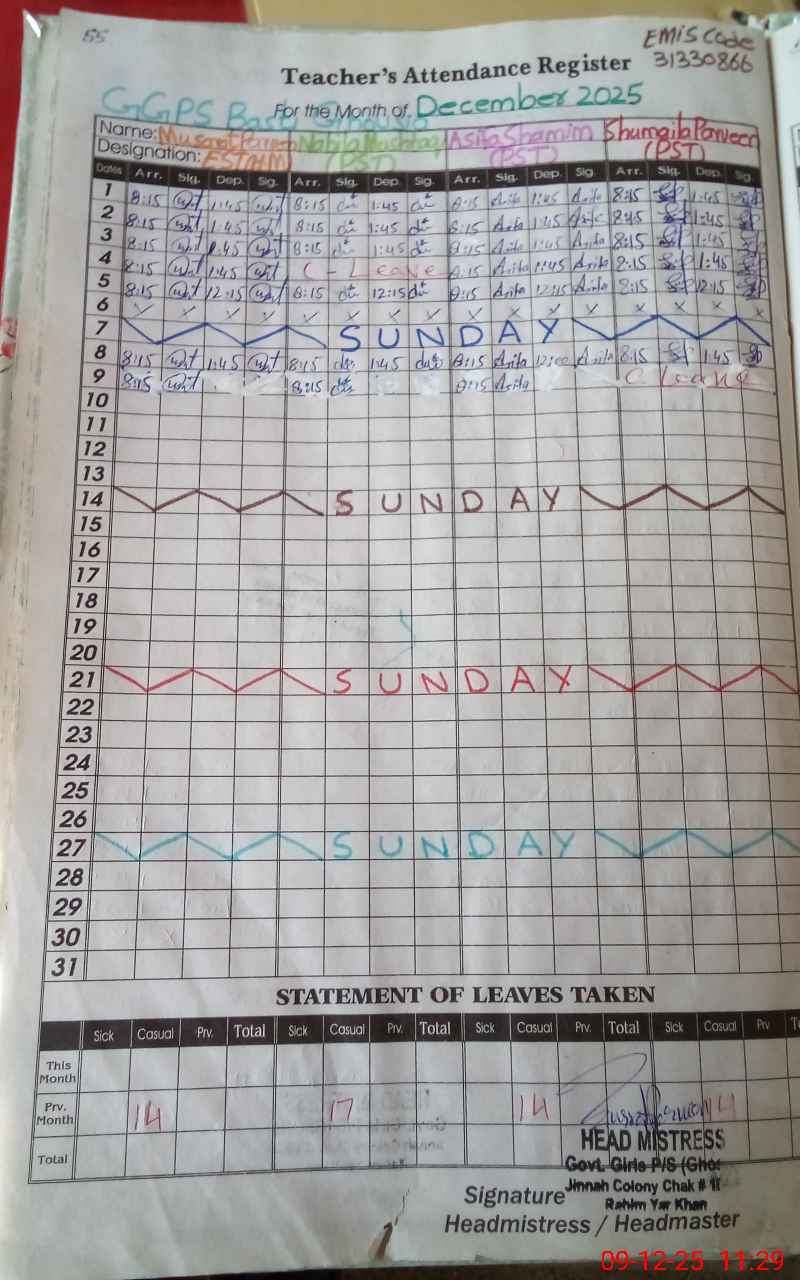 55
EMIS Code
31330866
Teacher's Attendance Register
GGPS Basti Ghousia
For the Month of. December 2025
Name: Musarat Parveen Nabila Mushtaq Asifa Shamim Shumaila Parveen
Designation: ESTHM (PST) (PST) (PST)
Dates Arr. Sig. Dep. Sig. Arr. Sig. Dep. Sig. Arr. Sig. Dep. Sig. Arr. Sig. Dep. Sig.
1 8:15 1:45 8:15 1:45 8:15 Asifa 1:45 Asifa 8:15 1:45
2 8:15 1:45 8:15 1:45 8:15 Asifa 1:45 Asifa 8:15 1:45
3 8:15 1:45 8:15 1:45 8:15 Asifa 1:45 Asifa 8:15 1:45
4 8:15 1:45 C-Leave 8:15 Asifa 1:45 Asifa 8:15 1:45
5 8:15 12:15 8:15 12:15 8:15 Asifa 12:15 Asifa 8:15 12:15
6 x x x x x x x x x x x x x x x x
7 SUNDAY
8 8:15 1:45 8:15 1:45 8:15 Asifa 12:00 Asifa 8:15 1:45
9 8:15 8:15 8:15 Asifa C Leave
10
11
12
13
14 SUNDAY
15
16
17
18
19
20
21 SUNDAY
22
23
24
25
26
27 SUNDAY
28
29
30
31
STATEMENT OF LEAVES TAKEN
Sick Casual Prv. Total Sick Casual Prv. Total Sick Casual Prv. Total Sick Casual Prv
This Month
Prv. Month 14 17 14 14
Total
HEAD MISTRESS
Govt. Girls P/S (Gho
Jinnah Colony Chak #
Rahim Yar Khan
Signature
Headmistress / Headmaster
09-12-25 11:29